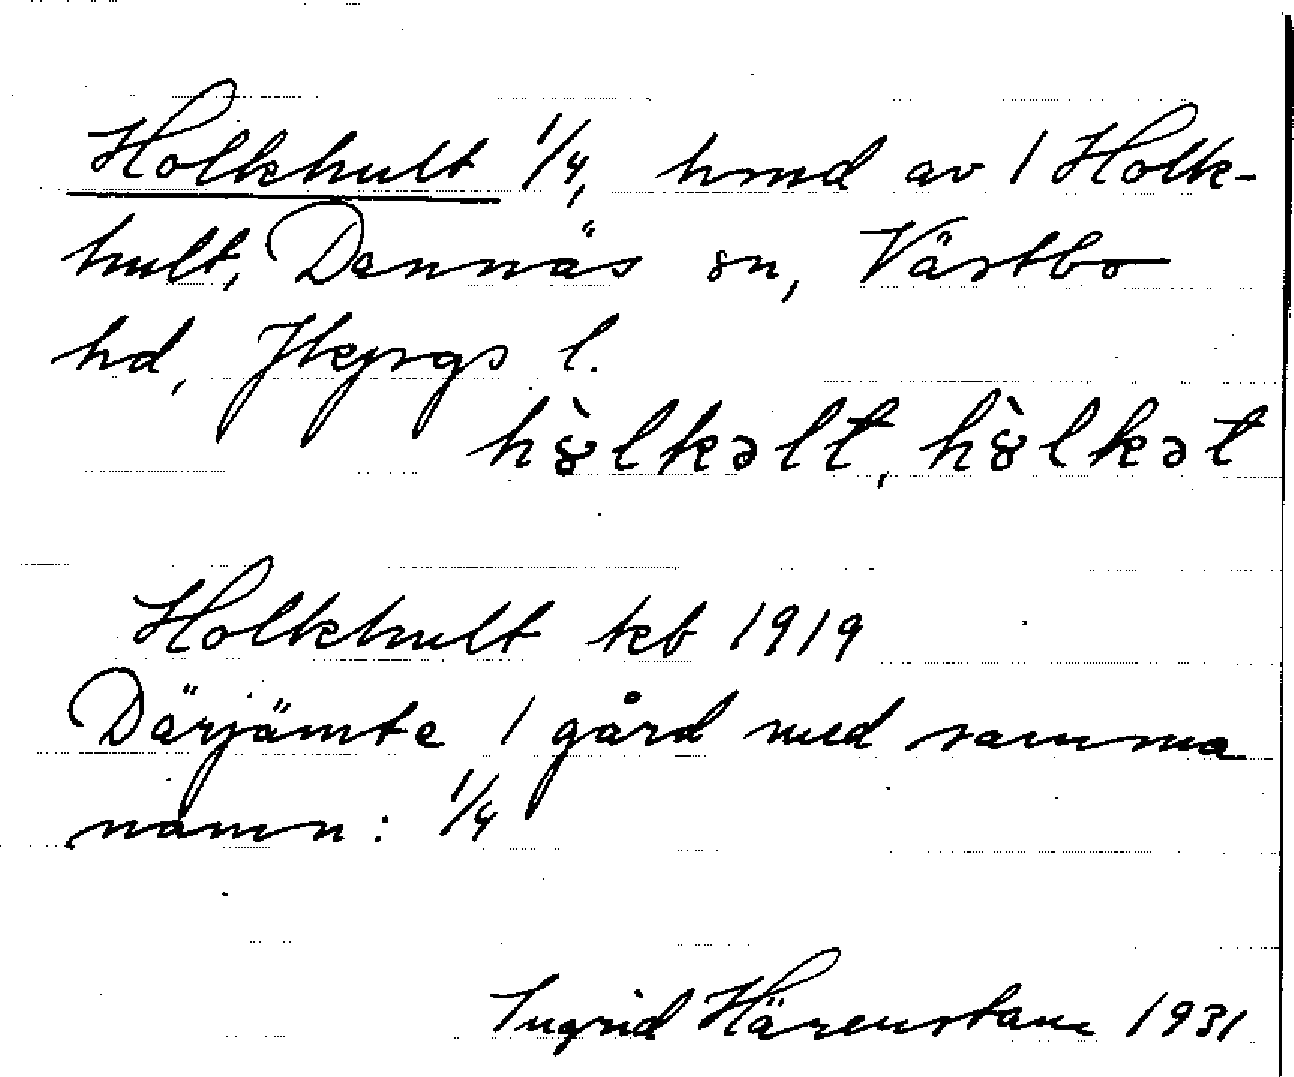 Holkhult 1/4, hmd av 1 Holk-
hult, Dannäs sn, Västbo
hd, Jkpgs l.
hȣ̀lkəlt, hȣ̀lkət
Holkhult kb 1919
Därjämte 1 gård med samma
namn: 1/4
Ingrid Härenstam 1931